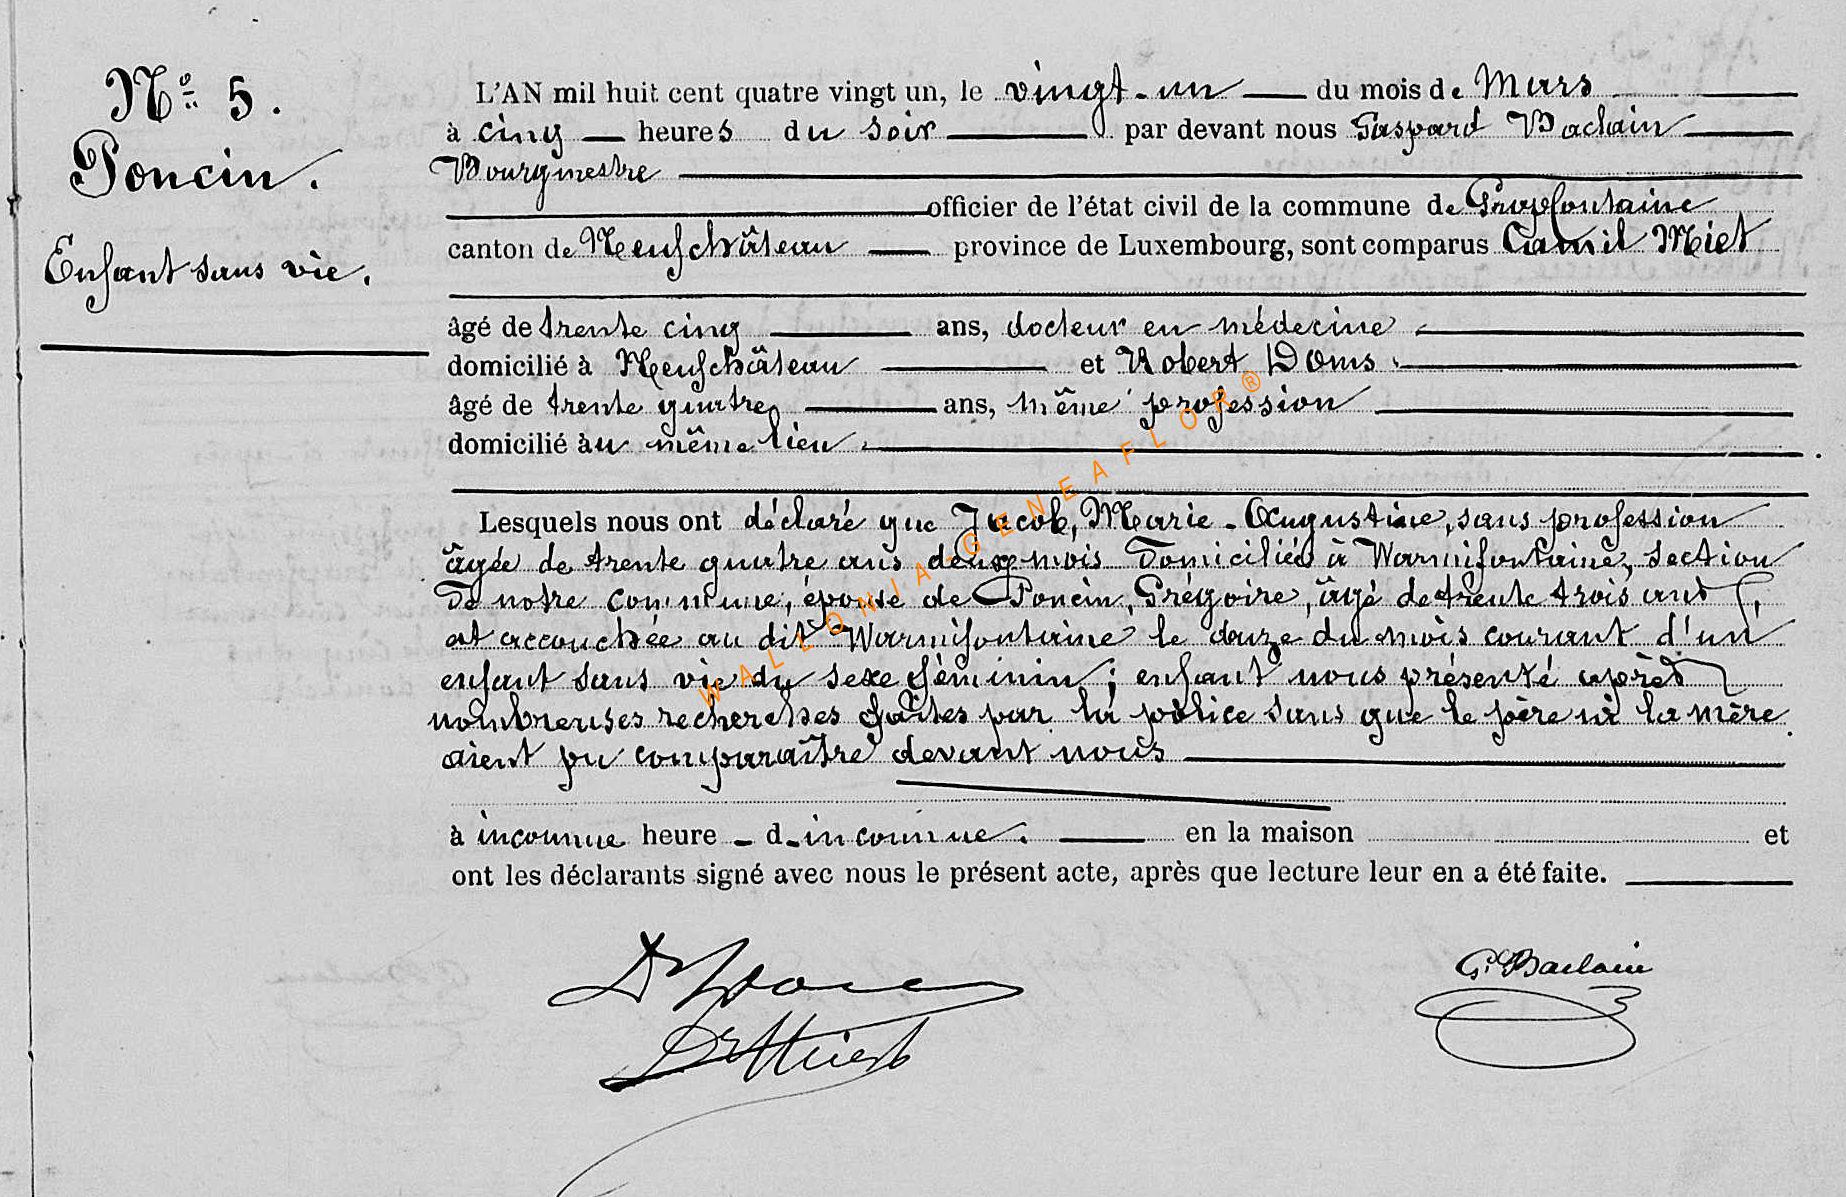 N° 5.
Poncin.
Enfant sans vie.
L'AN mil huit cent quatre vingt un, le vingt-un du mois de Mars
à cinq heures du soir par devant nous Gaspard Baclain
Bourgmestre
officier de l'état civil de la commune de Grapfontaine
canton de Neufchâteau province de Luxembourg, sont comparus Camil Miet
âgé de trente cinq ans, docteur en médecine
domicilié à Neufchâteau et Robert Doms
âgé de trente quatre ans, même profession
domicilié au même lieu
Lesquels nous ont déclaré que Jacob, Marie-Augustine, sans profession
âgée de trente quatre ans deux mois domiciliée à Warmifontaine, section
de notre commune, épouse de Poncin, Grégoire, âgé de trente trois ans,
est accouchée au dit Warmifontaine le douze du mois courant d'un
enfant sans vie du sexe féminin; enfant nous présenté après
nombreuses recherches faites par la police sans que le père ni la mère
aient pu comparaître devant nous
à inconnue heure - d-inconnue. en la maison et
ont les déclarants signé avec nous le présent acte, après que lecture leur en a été faite.
G. Baclain
Dr Miest
WALLONIA-GENEAFLOR®